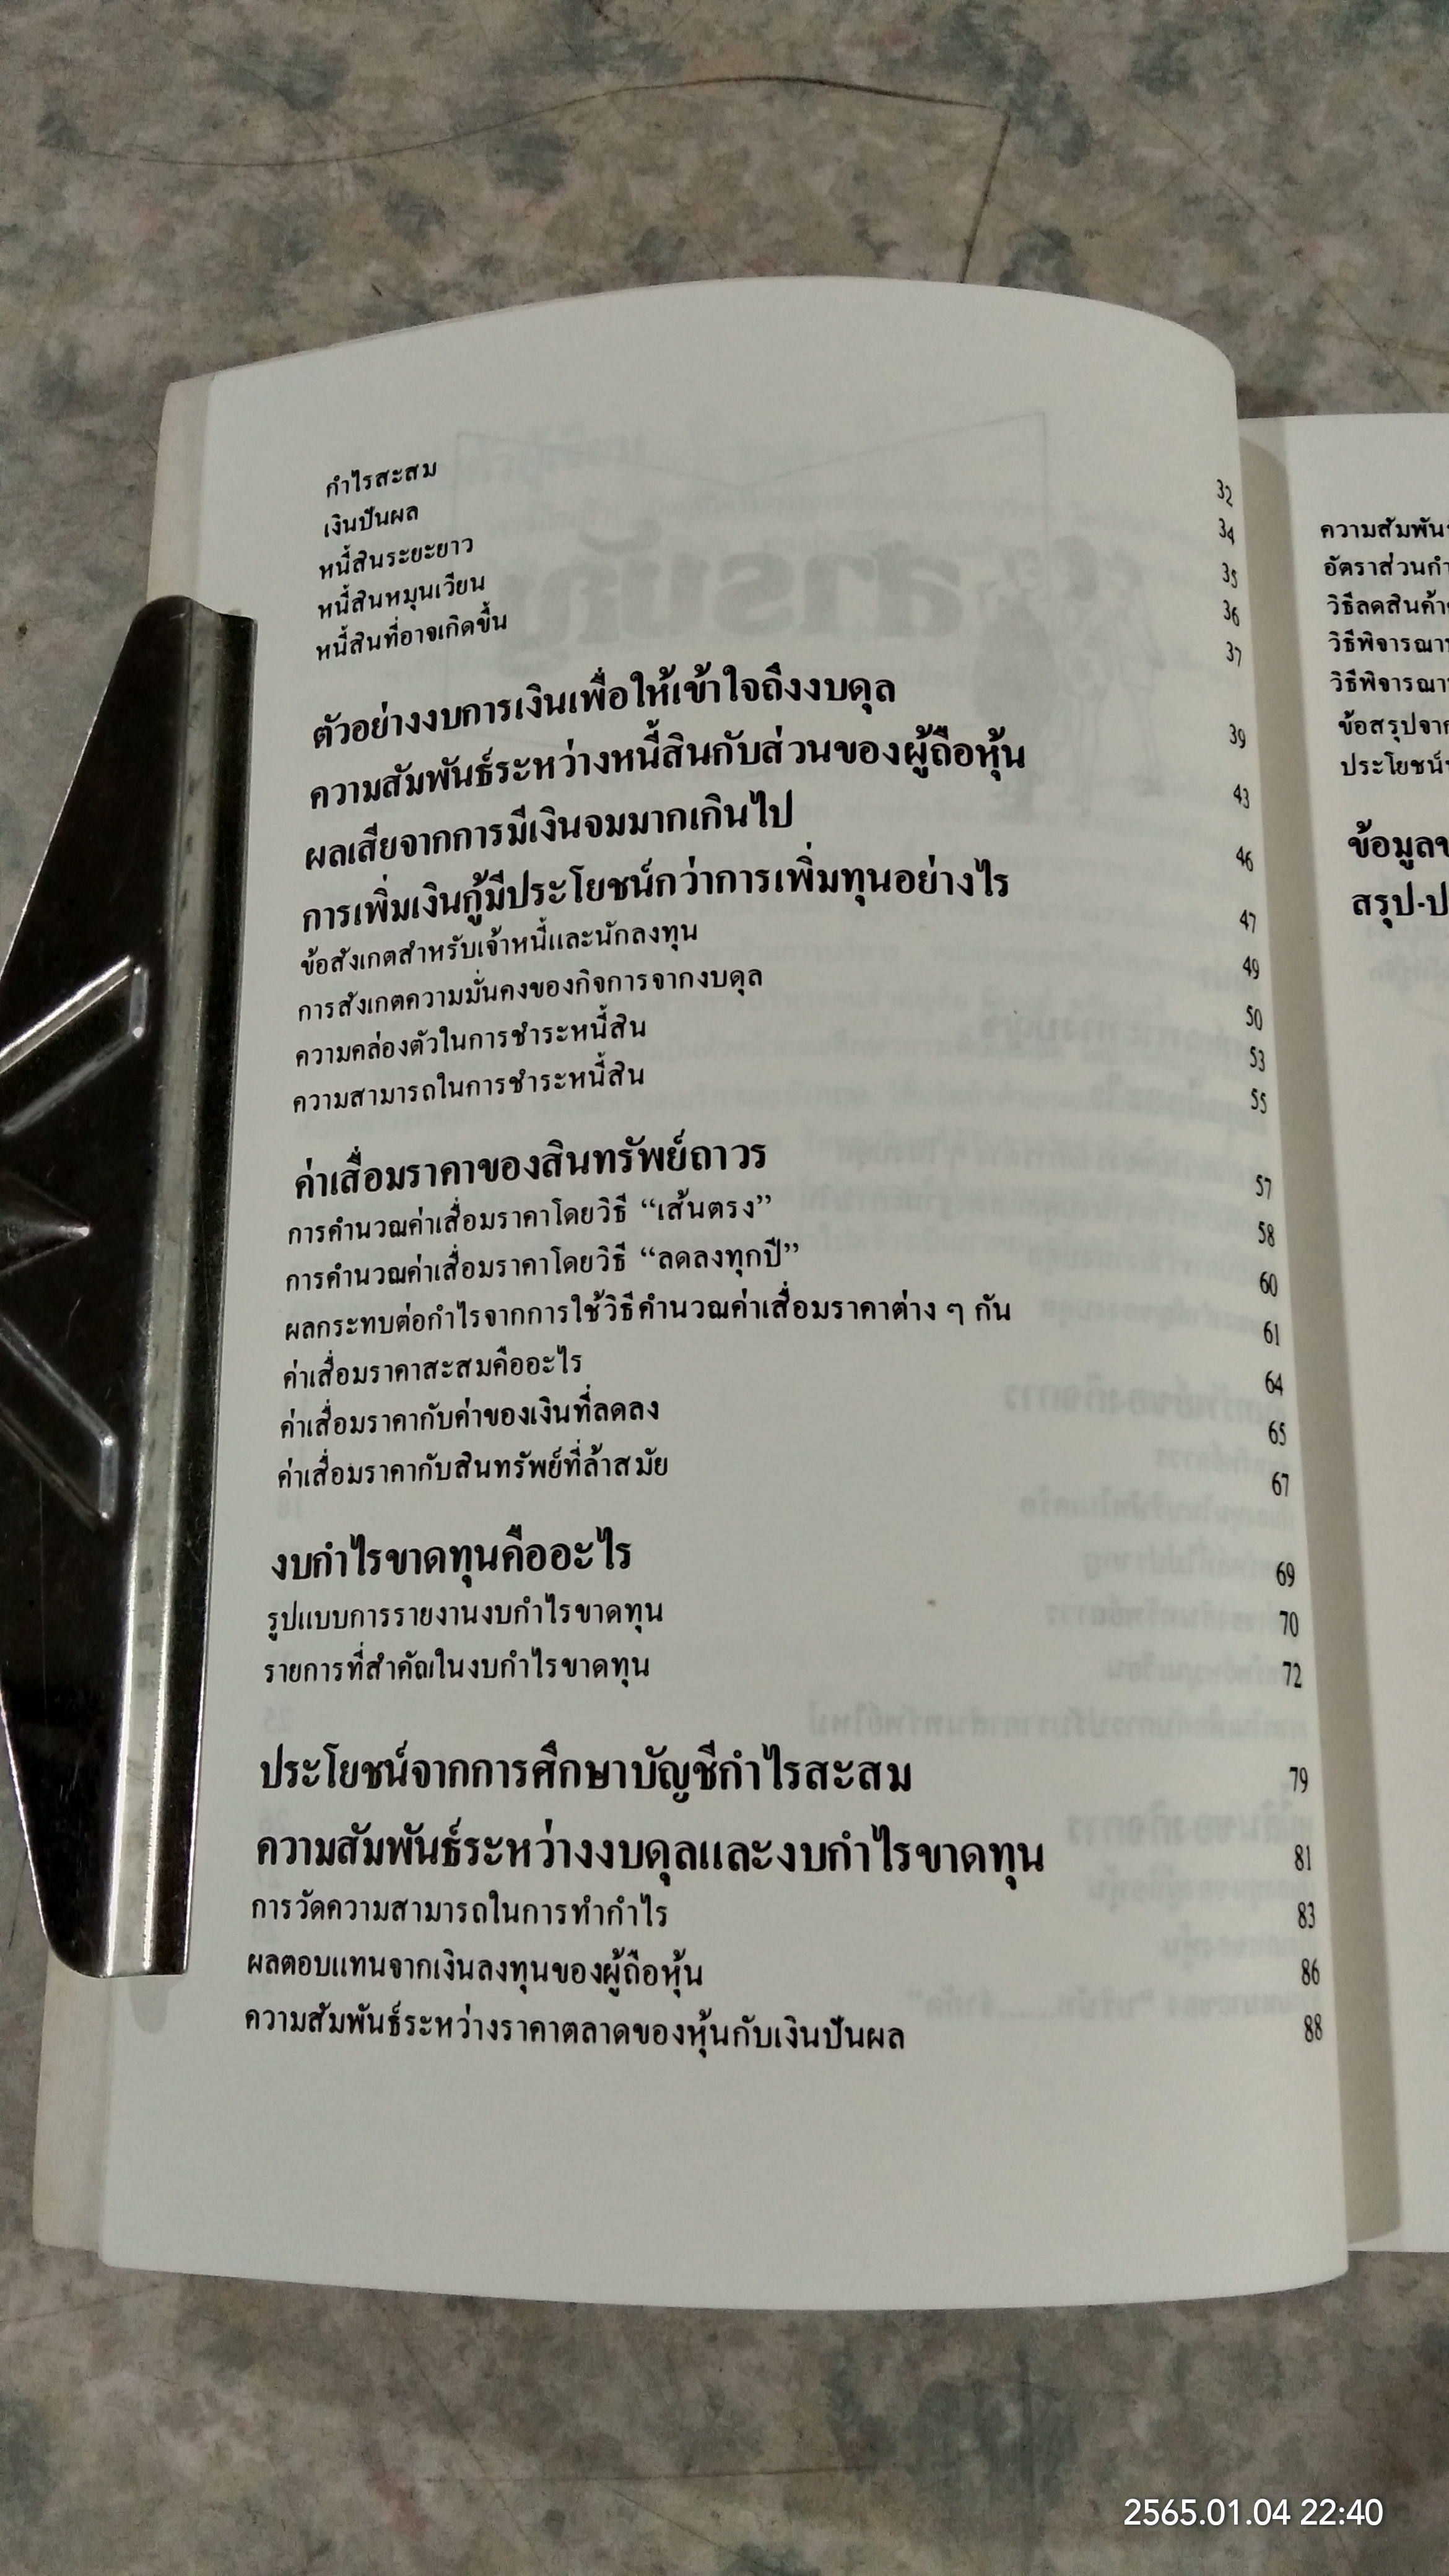 กำไรสะสม 32
เงินปันผล 34
หนี้สินระยะยาว 35
หนี้สินหมุนเวียน 36
หนี้สินที่อาจเกิดขึ้น 37
ตัวอย่างงบการเงินเพื่อให้เข้าใจถึงงบดุล 39
ความสัมพันธ์ระหว่างหนี้สินกับส่วนของผู้ถือหุ้น 43
ผลเสียจากการมีเงินจมมากเกินไป 46
การเพิ่มเงินกู้มีประโยชน์กว่าการเพิ่มทุนอย่างไร 47
ข้อสังเกตสำหรับเจ้าหนี้และนักลงทุน 49
การสังเกตความมั่นคงของกิจการจากงบดุล 50
ความคล่องตัวในการชำระหนี้สิน 53
ความสามารถในการชำระหนี้สิน 55
ค่าเสื่อมราคาของสินทรัพย์ถาวร 57
การคำนวณค่าเสื่อมราคาโดยวิธี “เส้นตรง” 58
การคำนวณค่าเสื่อมราคาโดยวิธี “ลดลงทุกปี” 60
ผลกระทบต่อกำไรจากการใช้วิธีคำนวณค่าเสื่อมราคาต่าง ๆ กัน 61
ค่าเสื่อมราคาสะสมคืออะไร 64
ค่าเสื่อมราคากับค่าของเงินที่ลดลง 65
ค่าเสื่อมราคากับสินทรัพย์ที่ล้าสมัย 67
งบกำไรขาดทุนคืออะไร 69
รูปแบบการรายงานงบกำไรขาดทุน 70
รายการที่สำคัญในงบกำไรขาดทุน 72
ประโยชน์จากการศึกษาบัญชีกำไรสะสม 79
ความสัมพันธ์ระหว่างงบดุลและงบกำไรขาดทุน 81
การวัดความสามารถในการทำกำไร 83
ผลตอบแทนจากเงินลงทุนของผู้ถือหุ้น 86
ความสัมพันธ์ระหว่างราคาตลาดของหุ้นกับเงินปันผล 88
ความสัมพัน
อัตราส่วนกำ
วิธีลดสินค้า
วิธีพิจารณา
วิธีพิจารณา
ข้อสรุปจาก
ประโยชน์
ข้อมูล
สรุป-ป
2565.01.04 22:40